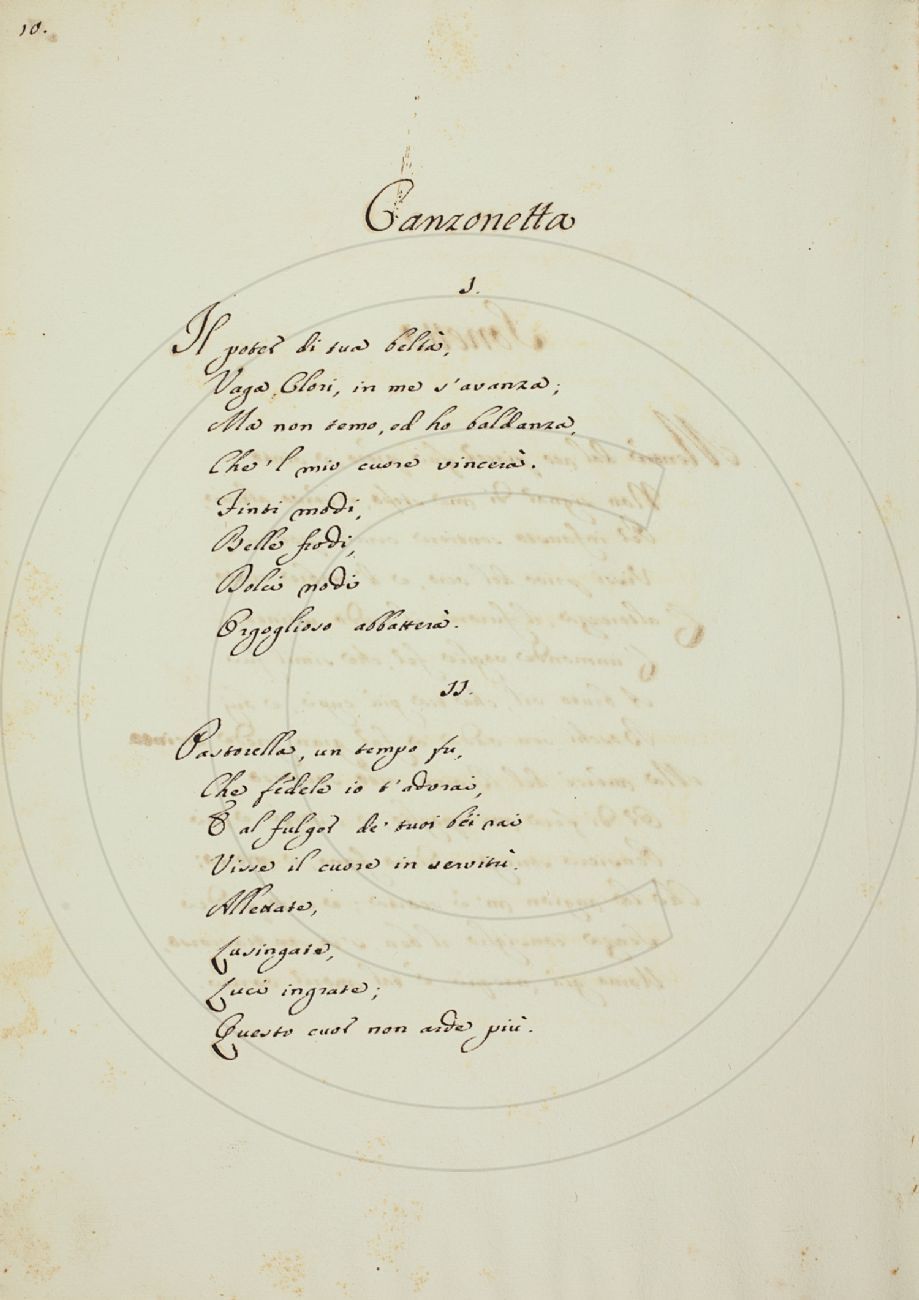 10.
Canzonetta
I.
Il poter di tua beltà,
Vaga Clori, in me s'avanza;
Ma non temo, ed ho baldanza,
Che 'l mio cuore vincerà.
Finti modi,
Belle frodi,
Dolci nodi
Orgoglioso abbatterà.
II.
Pastorella, un tempo fu,
Che fedele io t'adorai,
E al fulgor de' tuoi bei rai
Visse il cuore in servitù.
Allettate,
Lusingate,
Luci ingrate;
Questo cuor non arde più.